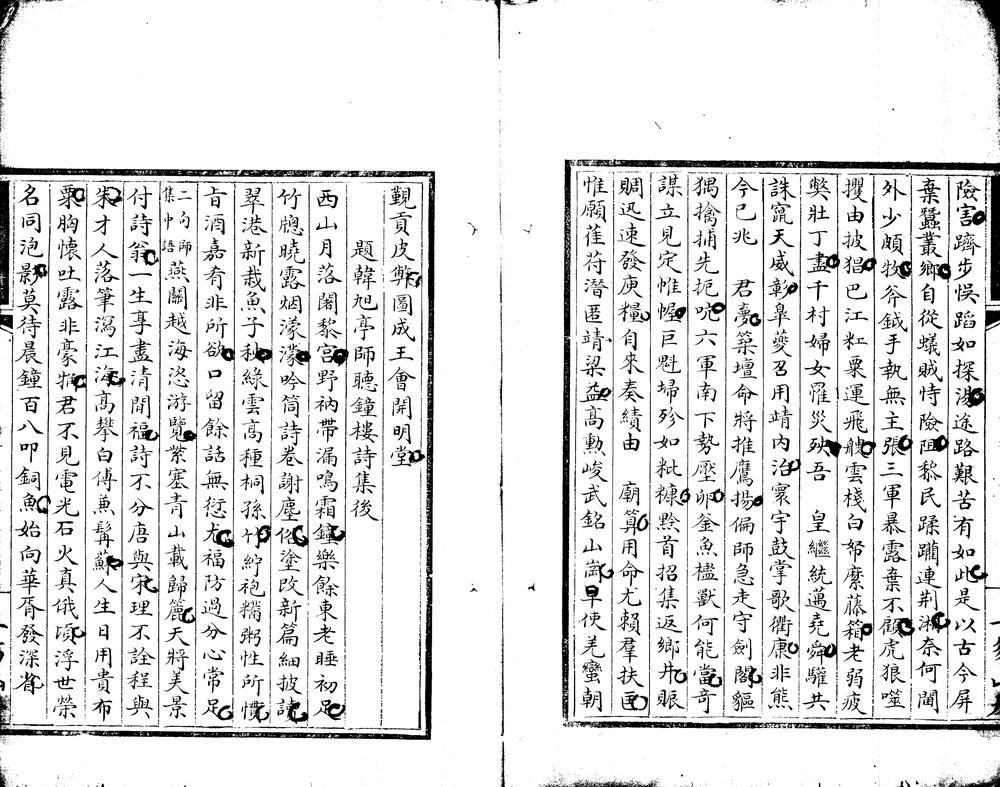 險害躋步悞蹈如探湯途路艱苦有如此是以古今屏
棄蠶叢鄉自從蟻賊恃險阻黎民蹂躪連荆湘奈何閫
外少頗牧斧鉞手執無主張三軍暴露棄不顧虎狼噬
攫由披猖巴江粒粟運飛艘雲棧白帑縻藤箱老弱疲
獘壯丁盡千村婦女罹災殃吾　皇繼統邁堯舜驩共
誅竄天威彰皋夔召用靖內治寰宇鼓掌歌衢康非熊
今已兆　君夢築壇命將推鷹揚偏師急走守劍閣貙
獁擒捕先扼吭六軍南下勢壓卵釜魚檻獸何能當奇
謀立見定惟幄巨魁埽殄如秕糠黔首招集返鄉井賑
賙迅速發庾糧自來奏績由　廟算用命尤賴羣扶匡
惟願萑苻潛匿靖梁益高勳峻武銘山崗早使羌蠻朝
覲貢皮幣圖成王會開明堂
題韓旭亭師聽鐘樓詩集後
西山月落闍黎宮野衲帶漏鳴霜鐘樂餘東老睡初足
竹牕曉露烟濛濛吟筒詩卷謝塵俗塗改新篇細披讀
翠港新栽魚子秧綠雲高種桐孫竹紵袍糲粥性所慣
旨酒嘉肴非所欲口留餘話無愆尤福防過分心常足
二句師集中語燕關越海恣游覽紫塞青山載歸簏天將美景
付詩翁一生享盡清閒福詩不分唐與宋理不詮程與
朱才人落筆瀉江海高攀白傅兼髯蘇人生日用貴布
粟胸懷吐露非豪猾君不見電光石火真俄頃浮世榮
名同泡影莫待晨鐘百八叩銅魚始向華胥發深省